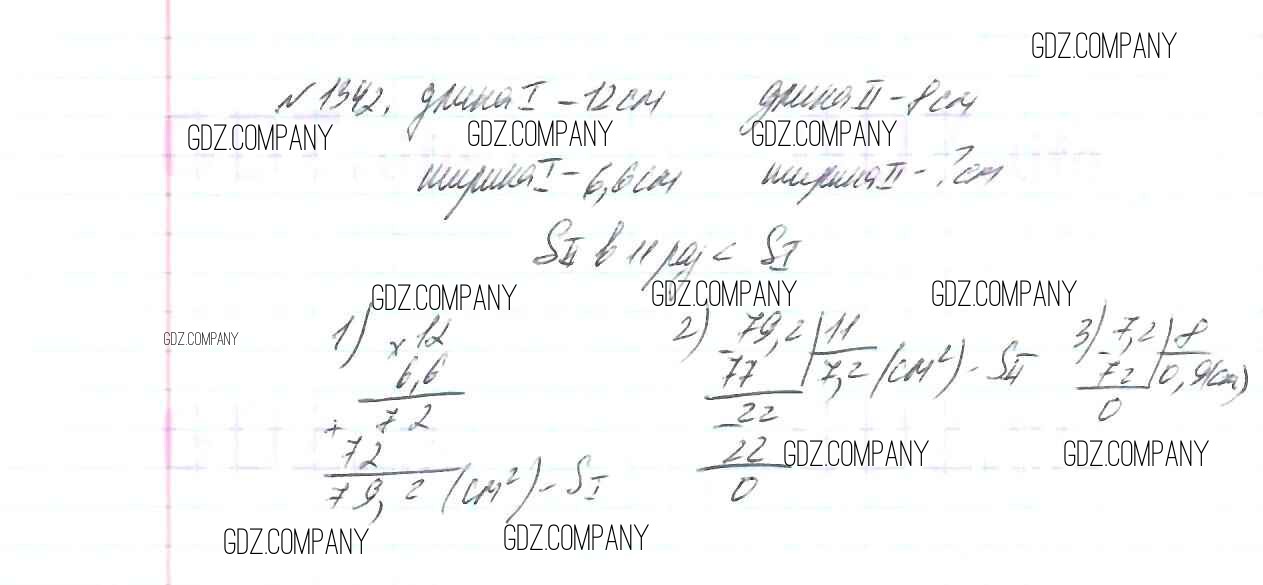 GDZ.COMPANY
№ 1342. длина I – 12 см длина II – 8 см
GDZ.COMPANY GDZ.COMPANY GDZ.COMPANY
ширина I – 6,6 см ширина II – ? см
S II в 11 раз < S I
GDZ.COMPANY GDZ.COMPANY GDZ.COMPANY
GDZ.COMPANY
1) × 12 2) – 79,2 | 11 3) – 7,2 | 8
6,6 77 7,2 (см²) – S II 72 0,9 (см)
+ 72 – 22 0
72 22 GDZ.COMPANY GDZ.COMPANY
79,2 (см²) – S I 0
GDZ.COMPANY GDZ.COMPANY